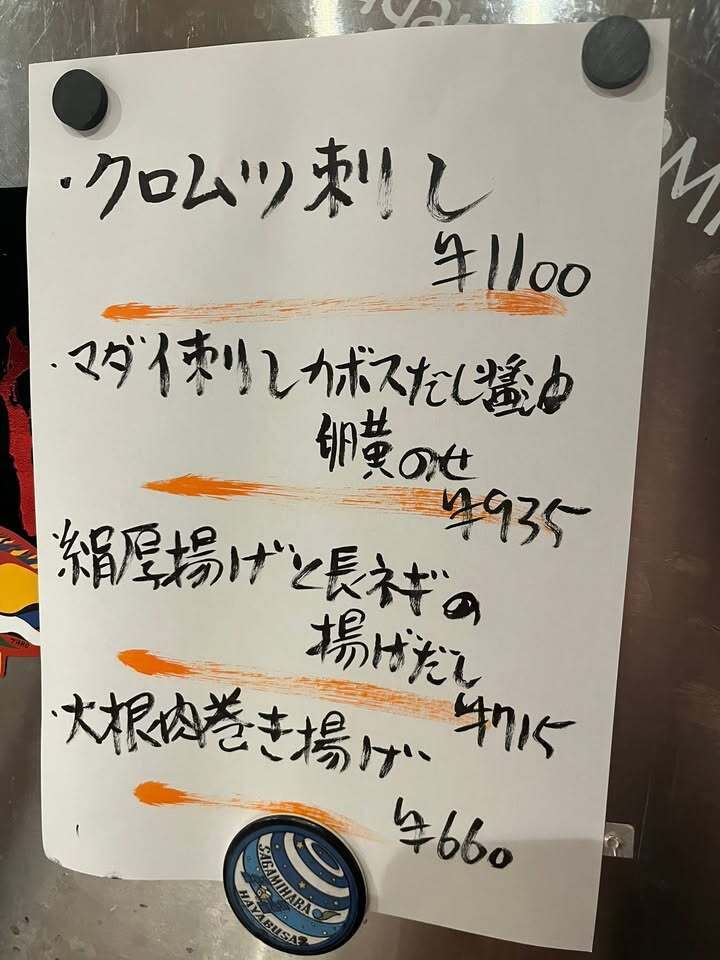 ・クロムツ刺し
¥1100
・マダイ刺しカボスだし醤油
卵黄のせ
¥935
・絹厚揚げと長ネギの
揚げだし
¥715
・大根肉巻き揚げ
¥660
SAGAMIHARA
HAYABUSA2